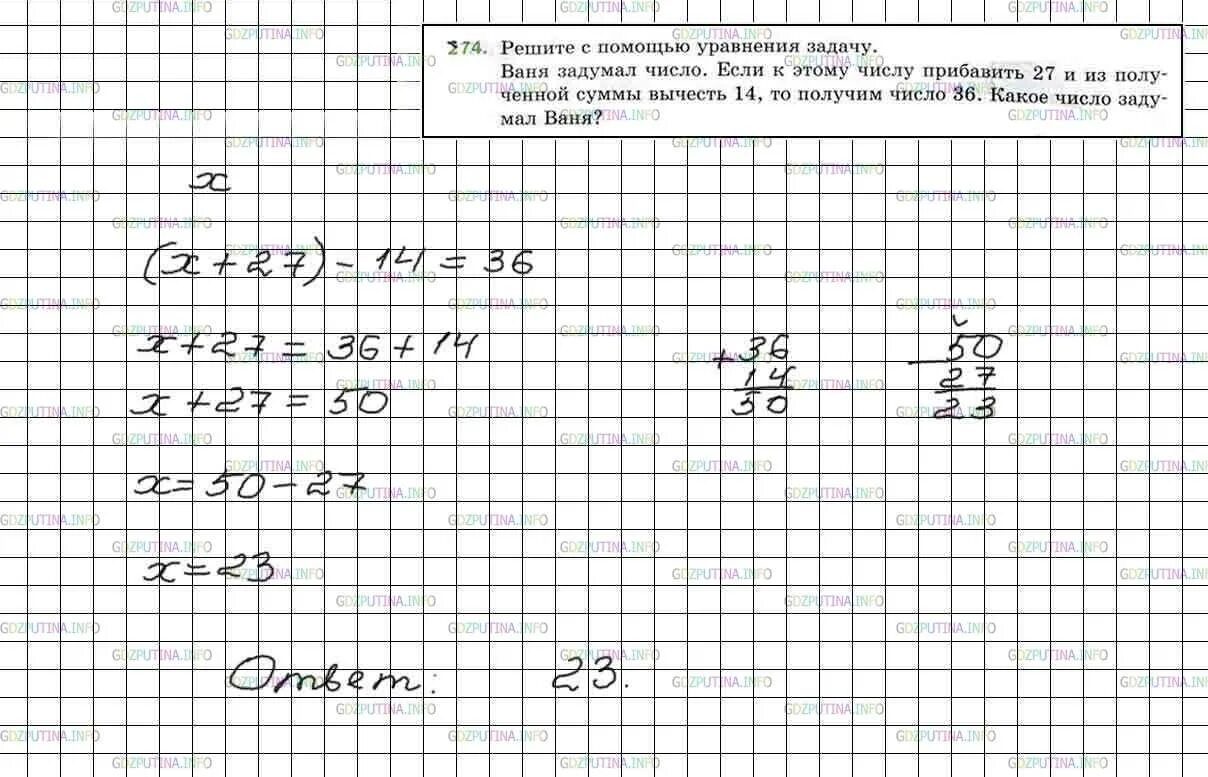 274. Решите с помощью уравнения задачу.
Ваня задумал число. Если к этому числу прибавить 27 и из полу-
ченной суммы вычесть 14, то получим число 36. Какое число заду-
мал Ваня?
x
(x + 27) - 14 = 36
x + 27 = 36 + 14
x + 27 = 50
x = 50 - 27
x = 23
+ 36
14
50
- 50
27
23
Ответ: 23.
GDZPUTINA.INFO